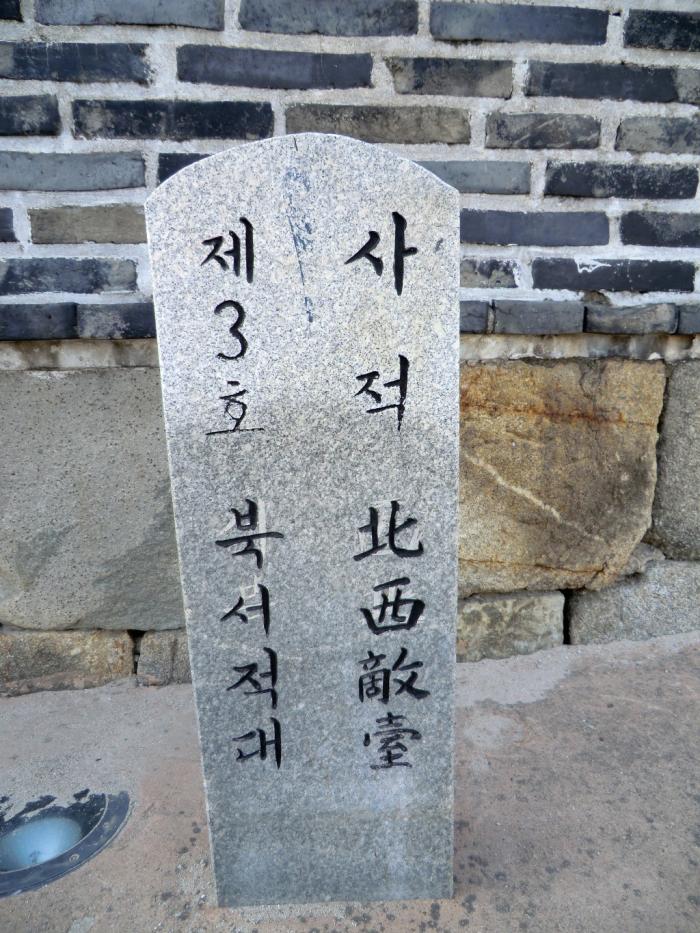 사적 北西敵臺
제3호 북서적대